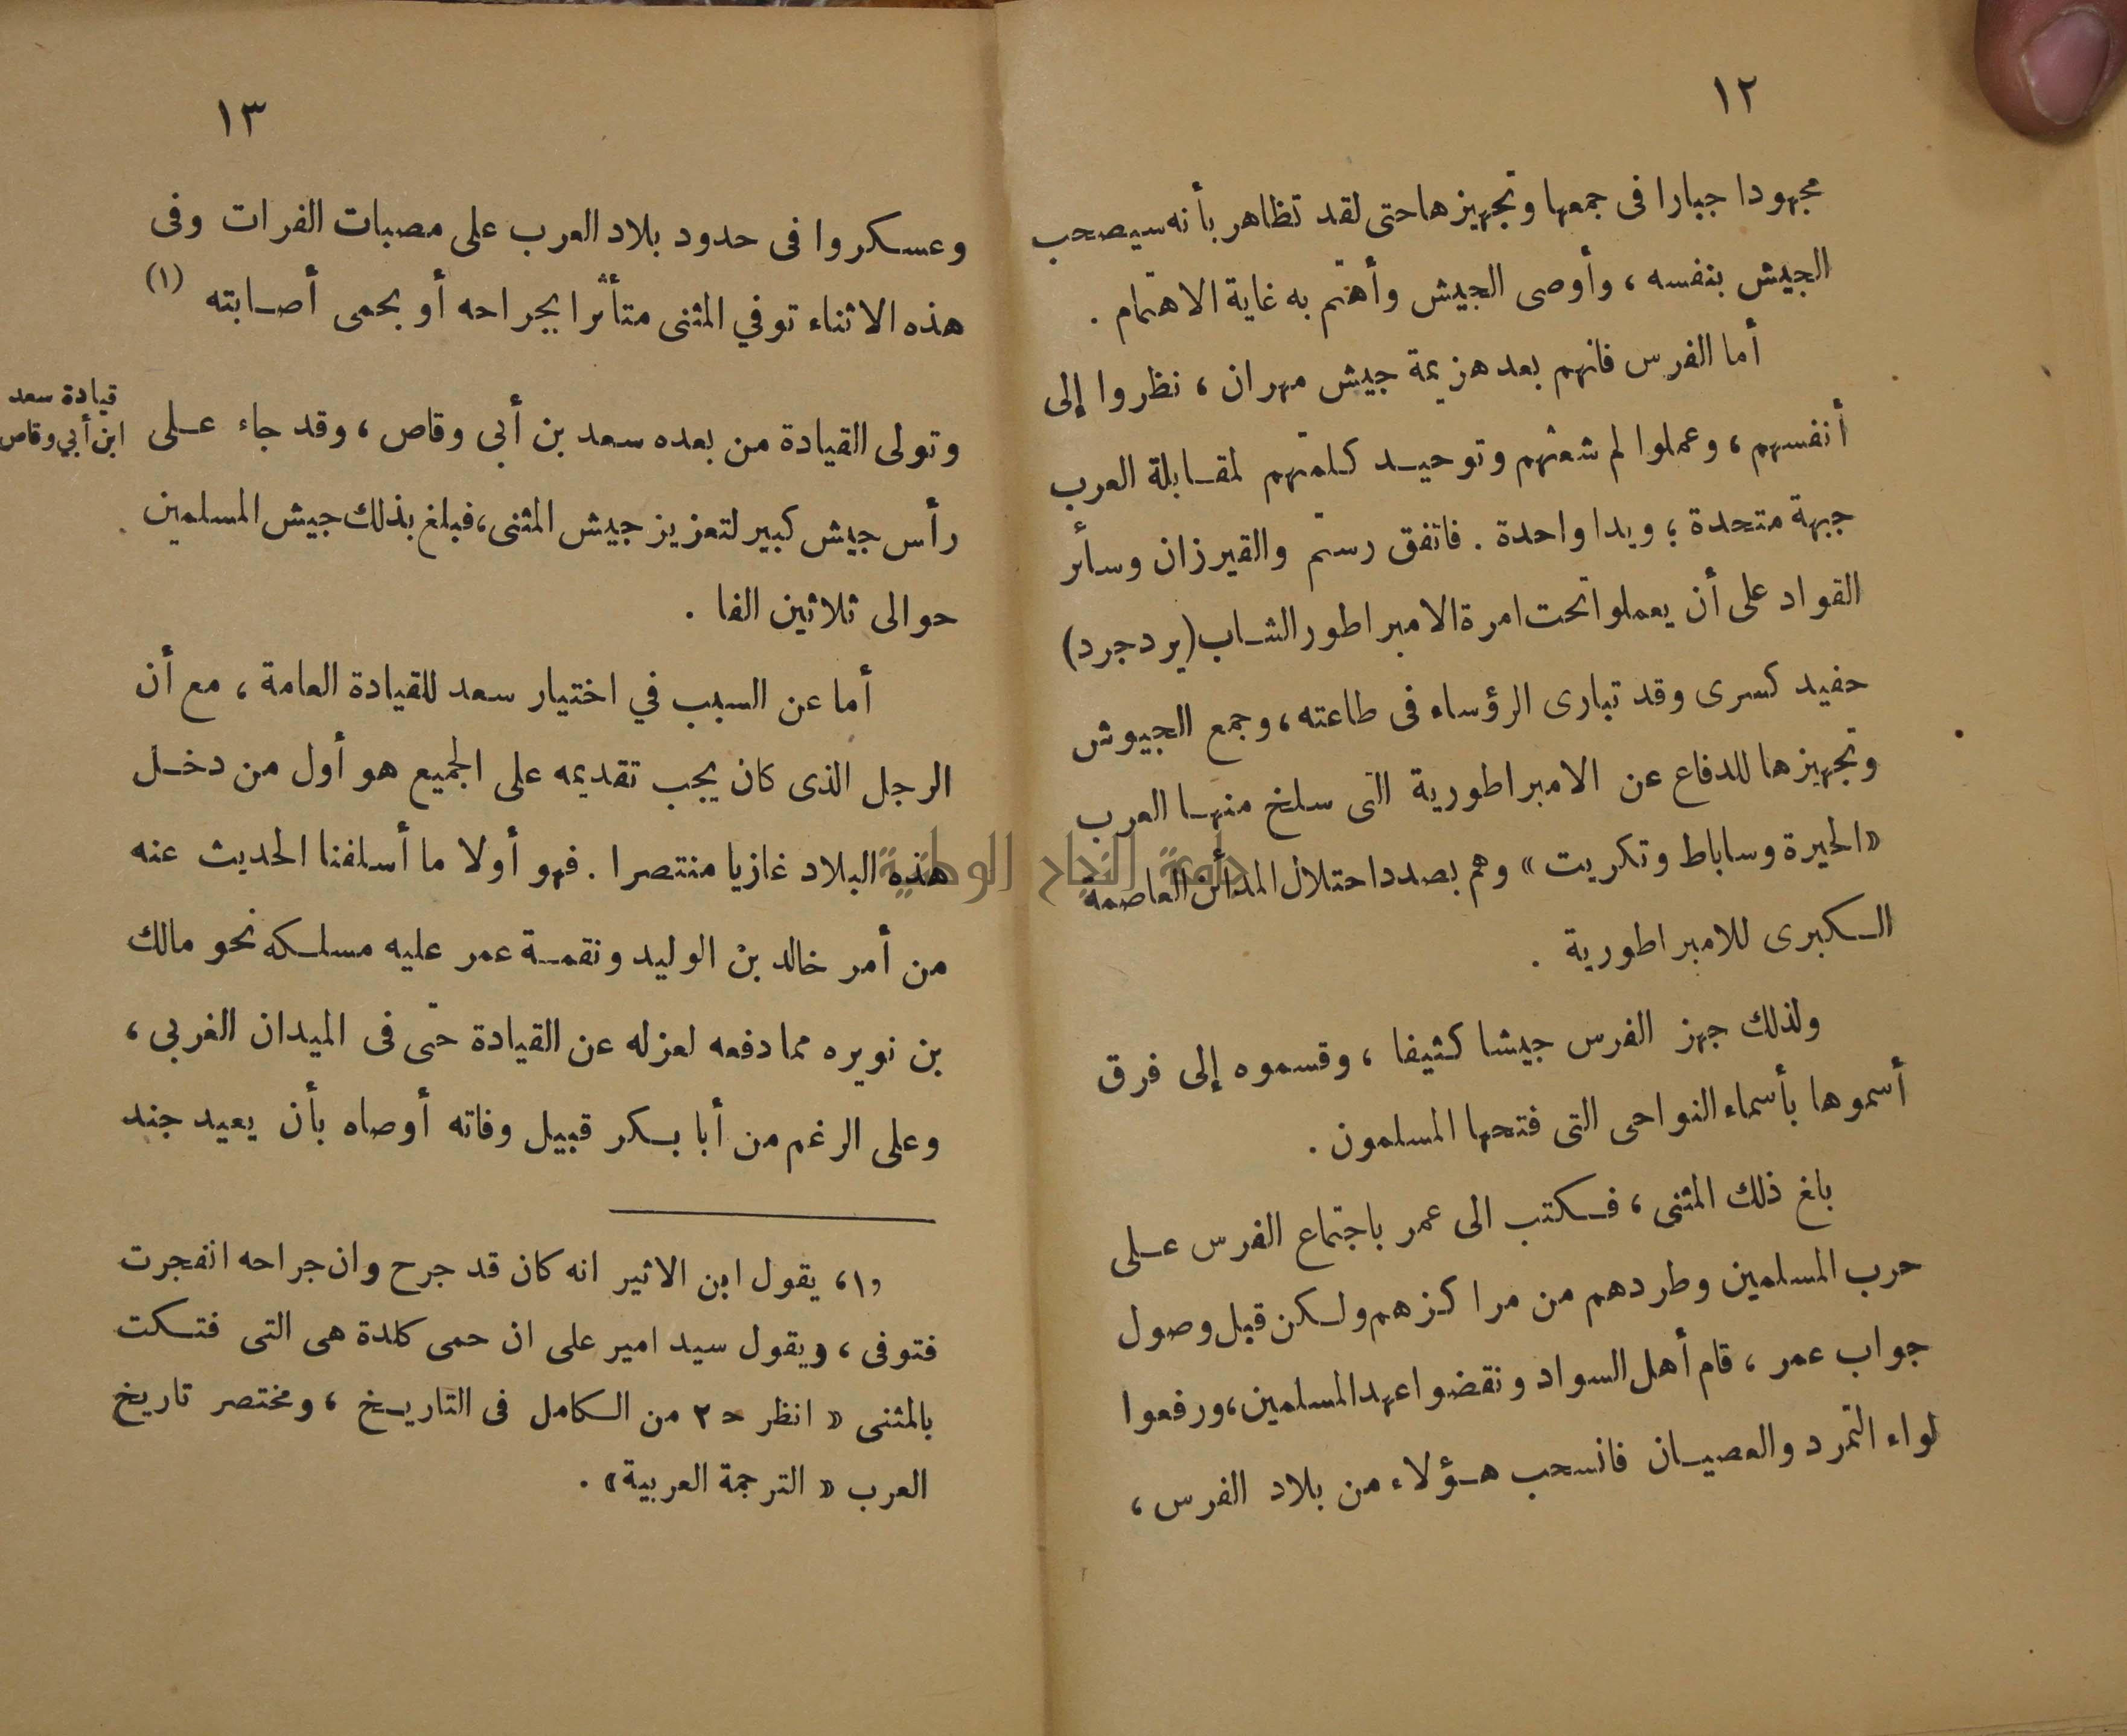 ١٢
مجهودا جبارا فى جمعها وتجهيزها حتى لقد تظاهر بأنه سيصحب
الجيش بنفسه ، وأوصى الجيش وأهتم به غاية الاهتمام .
أما الفرس فانهم بعد هزيمة جيش مهران ، نظروا إلى
أنفسهم ، وعملوا لم شعثهم وتوحيد كلمتهم لمقابلة العرب
جبهة متحدة ؛ ويدا واحدة . فاتفق رستم والقيرزان وسائر
القواد على أن يعملوا تحت امرة الامبراطور الشاب (يردجرد)
حفيد كسرى وقد تبارى الرؤساء فى طاعته ، وجمع الجيوش
وتجهيزها للدفاع عن الامبراطورية التى سلخ منها العرب
«الحيرة وساباط وتكريت» وهم بصدد احتلال المدائن العاصمة
الكبرى للامبراطورية .
ولذلك جهز الفرس جيشا كثيفا ، وقسموه إلى فرق
أسموها بأسماء النواحى التى فتحها المسلمون .
باغ ذلك المثنى ، فكتب الى عمر باجتماع الفرس على
حرب المسلمين وطردهم من مراكزهم ولكن قبل وصول
جواب عمر ، قام أهل السواد ونقضوا عهد المسلمين ، ورفعوا
لواء التمرد والعصيان فانسحب هؤلاء من بلاد الفرس ،
١٣
وعسكروا فى حدود بلاد العرب على مصبات الفرات وفى
هذه الاثناء توفي المثنى متأثرا بجراحه أو بحمى أصابته (١)
قيادة سعد
ابن أبي وقاص
وتولى القيادة من بعده سعد بن أبي وقاص ، وقد جاء على
رأس جيش كبير لتعزيز جيش المثنى ، فبلغ بذلك جيش المسلمين
حوالى ثلاثين الفا .
أما عن السبب في اختيار سعد للقيادة العامة ، مع أن
الرجل الذى كان يجب تقديمه على الجميع هو أول من دخل
هذه البلاد غازيا منتصرا . فهو أولا ما أسلفنا الحديث عنه
من أمر خالد بن الوليد ونقمة عمر عليه مسلكه نحو مالك
بن نويره مما دفعه لعزله عن القيادة حتى فى الميدان الغربى ،
وعلى الرغم من أبا بكر قبيل وفاته أوصاه بأن يعيد جند
«١» يقول ابن الاثير انه كان قد جرح وان جراحه انفجرت
فتوفى ، ويقول سيد امير على ان حمى كلدة هى التى فتكت
بالمثنى « انظر ح ٢ من الكامل فى التاريخ ، ومختصر تاريخ
العرب « الترجمة العربية» .
جامعة النجاح الوطنية